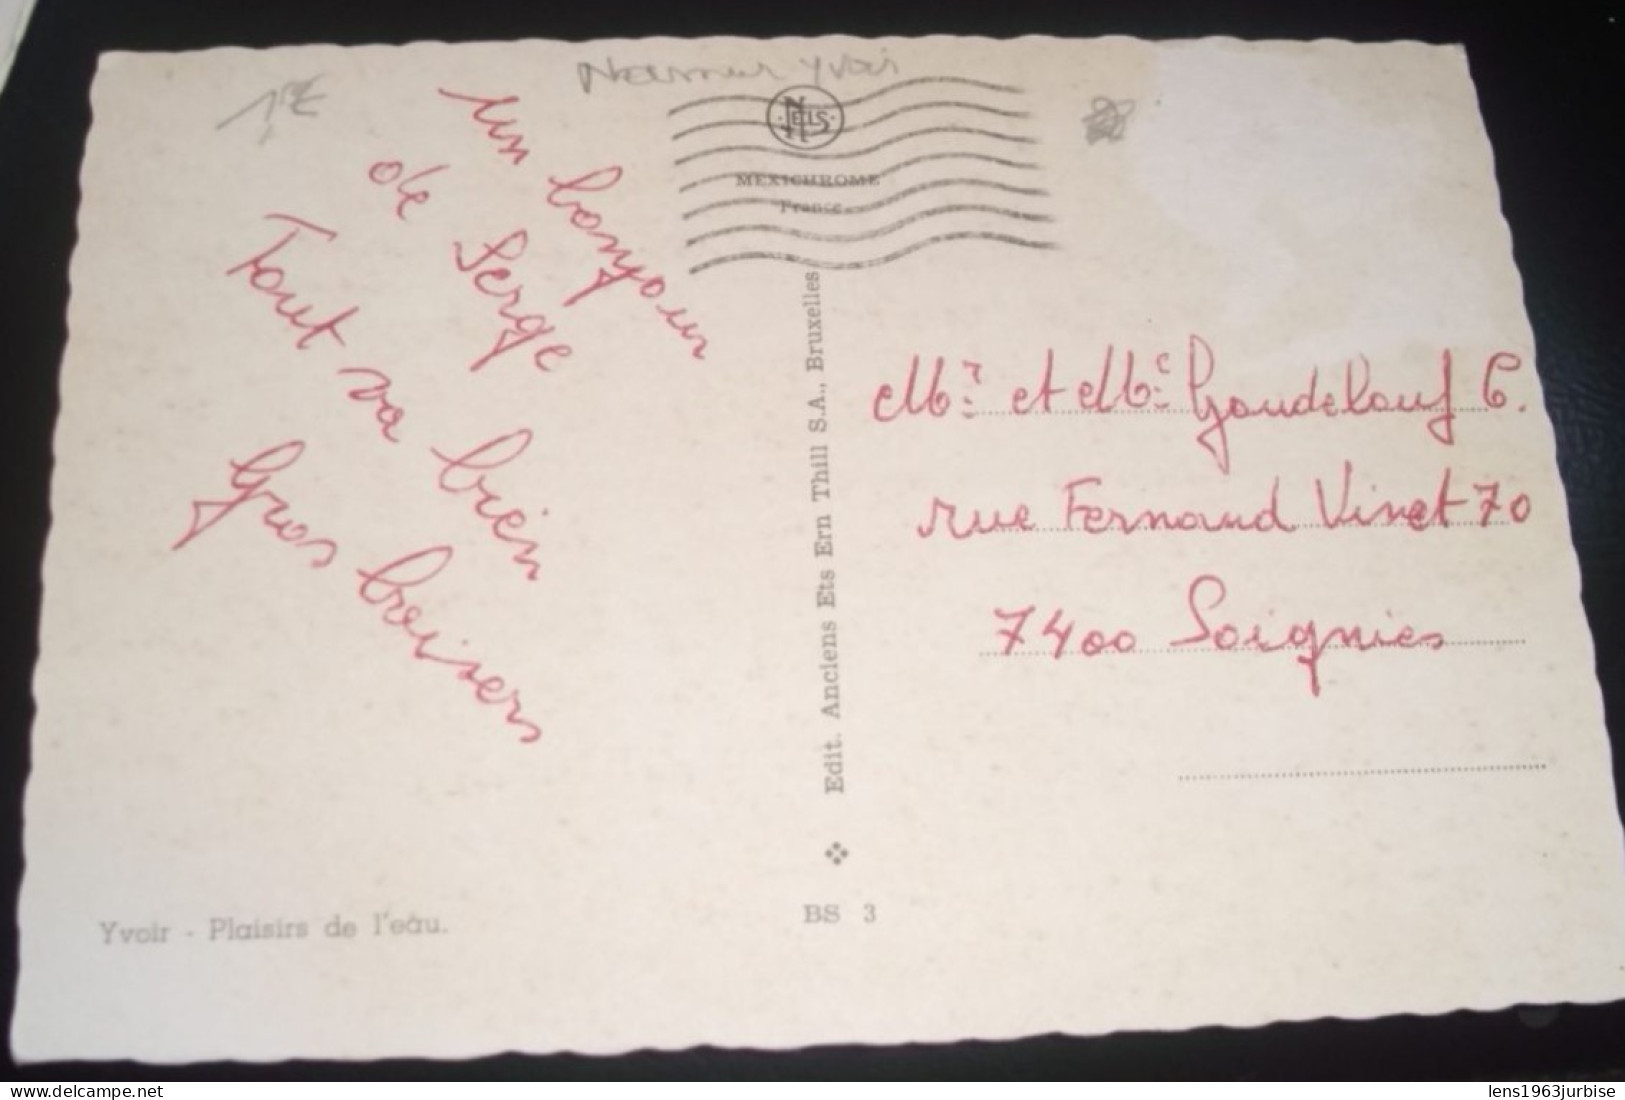 Namur Yvoir
NELS
MEXICHROME
France
Un bonjour
de Serge
Tout va bien
Gros baisers
Edit. Anciens Ets Ern Thill S.A., Bruxelles
Mr. et Me. Goudelouf C.
rue Fernand Vinet 70
7400 Soignies
Yvoir - Plaisirs de l'eau.
BS 3
www.delcampe.net
lens1963jurbise